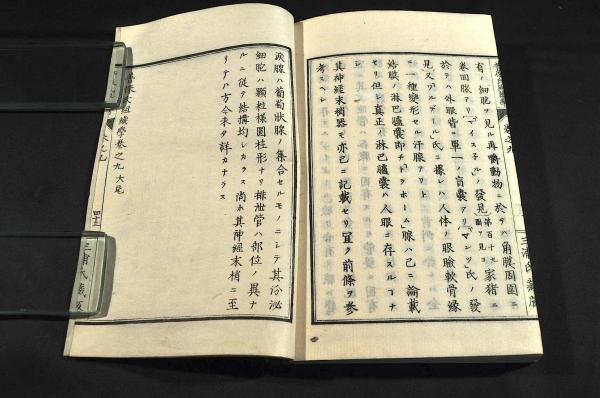 有ノ細胞ヲ見ル再嚼動物ニ於テハ角膜周圍ニ
卷圓腺アリ「マイスネル」ノ發見第百十七圖ヲ見ヨ家猪ニ
於テハ外眼眥ニ單一ノ盲囊アリ「マンツ」氏ノ發
見又「ワルデール」氏ニ據レハ人体ノ眼瞼軟骨緣
ニ一種變形セル汗腺アリト
結膜ノ淋巴臚囊即チ「トラホーム」腺ハ已ニ論載
セリ但シ真正ノ淋巴臚囊ハ人眼ニ存スル丁ナシ
其神經末梢器モ亦已ニ記載セリ宜ク前條ヲ參
考スヘシ
淚腺ハ葡萄狀腺ノ集合セルモノニシテ其分泌
細胞ハ顆粒様圓柱形ナリ排泄管ハ部位ノ異ナ
ルニ從テ結搆均シカラス尚ホ其神經末梢ニ至
リテハ方今未タ詳カナラス
組織學卷之九大尾
三浦氏藏版